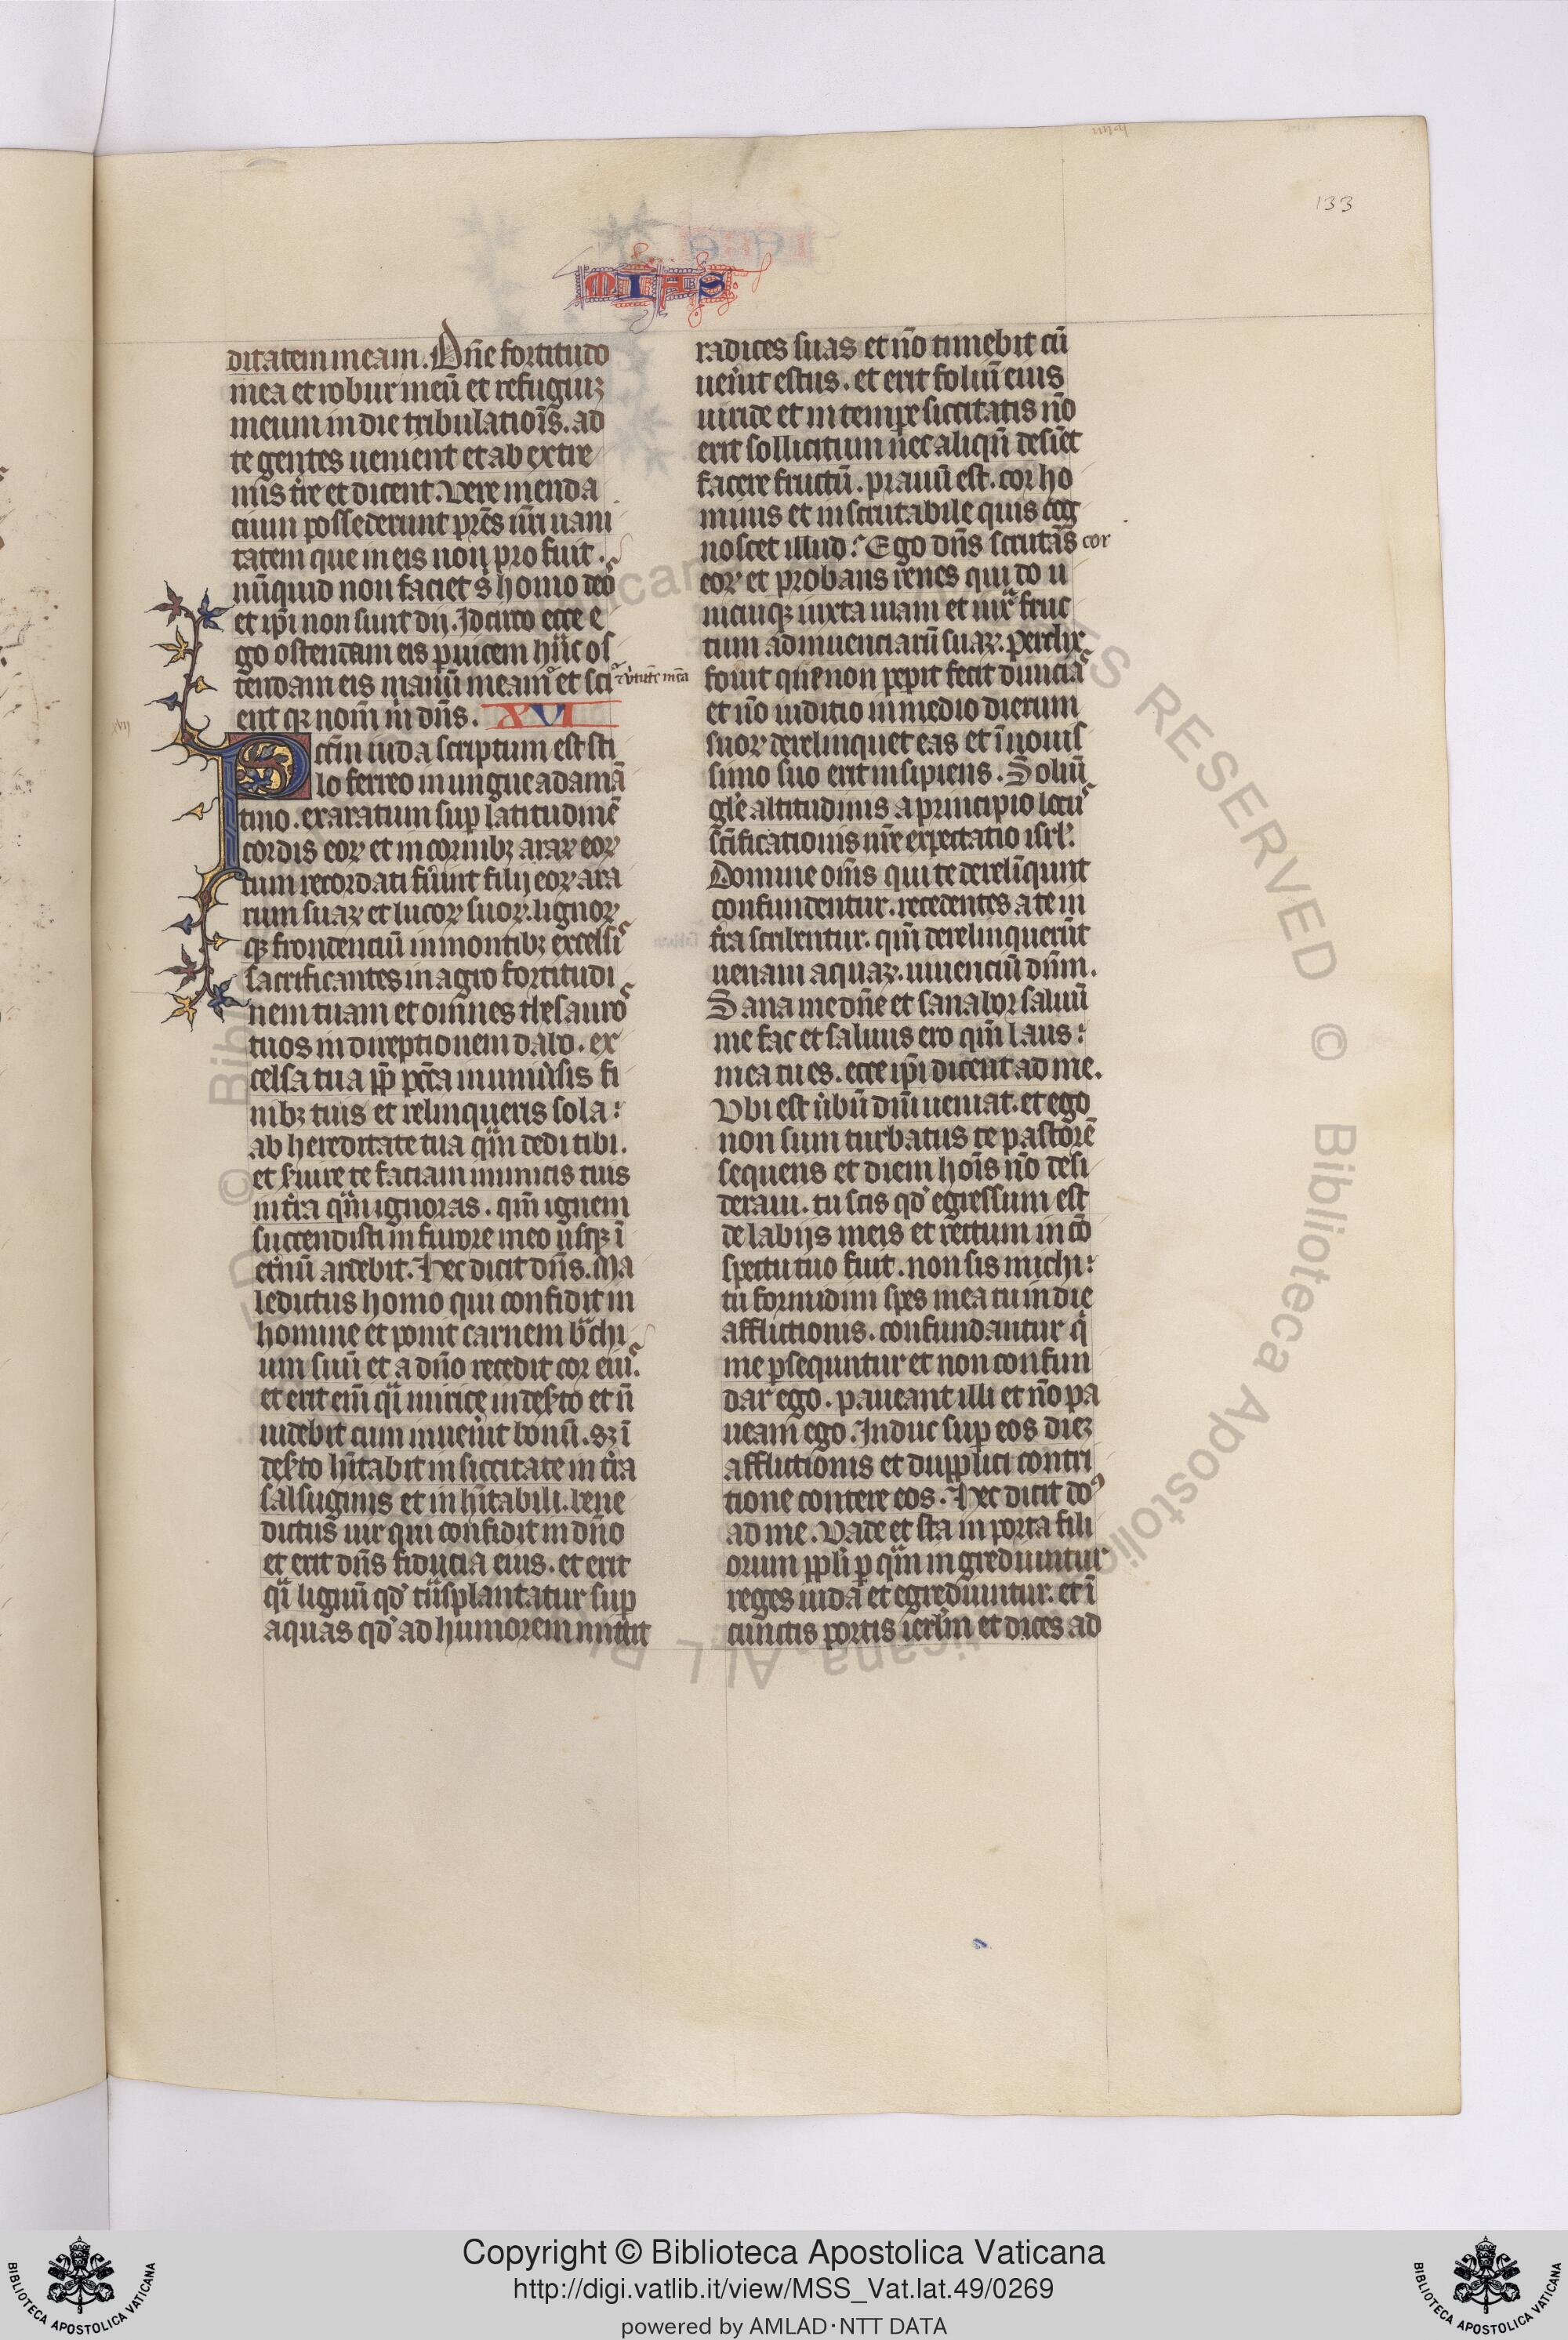 133
MIAS
ditatem meam. Dn̄e fortitudo
mea et robur meū et refugiuꝫ
meum in die tribulatioīs. ad
te gentes uenient et ab extre
mis t̄re et dicent. Vere menda
cium possederunt pr̄es nr̄i uani
tatem que in eis non profuit.
nūquid non faciet s̄ homo deos
et ip̄i non sunt dij. Idcirco ecce e
go ostendam eis ꝑ uicem hāc os
tendam eis manū meam et sci
⁊ v̄tutē meā
ent qꝫ nom̄ m̄ dn̄s. XVI
xvij
Pctm̄ iuda scriptum est sti
lo ferreo in ungue adamā
tino. exaratum suꝑ latitudinē
cordis eoꝝ et in cornibꝫ araꝝ eoꝝ
cum recordati fuīnt filij eoꝝ ara
rum suaꝝ et lucoꝝ suoꝝ. lignoꝝ
qꝫ frondenciū in montibꝫ excelsis
sacrificantes in agro fortitudi
nem tuam et omn̄es thesauros
tuos in direptionem dabo. ex
celsa tua ꝓp̄ pct̄a in uniūsis fi
nibꝫ tuis et relinqueris sola:
ab hereditate tua qm̄ dedi tibi.
et s̄uire te faciam inimicis tuis
in t̄ra qm̄ ignoras. qm̄ ignem
succendisti in furore meo usqꝫ ī
et̄nū ardebit. Hec dicit dn̄s. Ma
ledictus homo qui confidit in
homine et ponit carnem bͣchi
um suū et a dn̄o recedit cor eius.
et erit em̄ qͣi mirice in des̄to et n̄
uidebit cum uen̄it bonū. sꝫ ī
des̄to hītabit in siccitate in t̄ra
salsuginis et inhītabili. bene
dictus uir qui confidit in dn̄o
et erit dn̄s fiducia eius. et erit
qͣi lignū qd̓ tͣnsplantatur suꝑ
aquas qd̓ ad humorem mittit
radices suas et nō timebit cū
uen̄it estus. et erit foliū eius
uiride et in tempe siccitatis nō
erit sollicitum nec aliqn̄ desīet
facere fructū. prauū est. cor ho
minis et inscrutabile quis cog
noscet illud: Ego dn̄s scrutās
cor
coꝝ et probans renes qui do u
nicuiqꝫ iuxta uiam et iuxͣ fruc
tum adinuenciarū suaꝝ. perdix
fouit que non pepit fecit diuicias
et nō iuditio in medio dierum
suoꝝ derelinquet eas et ī nouis
simo suo erit insipiens. Soliū
gl̄e altitudinis a principio locus
scīficationis nr̄e expectatio isrl̓.
Domine om̄s qui te derelīqunt
confundentur. recedentes a te in
t̄ra scribentur. qm̄ derelinquerūt
uenam aquaꝝ. uiuenciū dn̄m.
Sana me dn̄e et sanabor saluū
me fac et saluus ero qm̄ laus:
mea tu es. ecce ip̄i dicent ad me.
Vbi est ūbū dn̄i ueniat. et ego
non sum turbatus te pastorē
sequens et diem hoīs nō desi
deraui. tu scis qd̓ egressum est
de labijs meis et rectum in cō
spectu tuo fuit. non sis michi:
tu formidini spes mea tu in die
afflictionis. confundantur q̄
me ꝑsequntur et non confun
dar ego. paueant illi et nō pa
ueam ego. Induc suꝑ eos dieꝫ
afflictionis et dupplici contri
tione contere eos. Hec dicit doꝰ
ad me. Vade et sta in porta fili
orum ppl̄i ꝑ qm̄ ingrediuntur
reges iuda et egrediuntur. et ī
cunctis portis ierl̄m et dices ad
© Biblioteca Apostolica Vaticana ALL RIGHTS RESERVED
Copyright © Biblioteca Apostolica Vaticana
http://digi.vatlib.it/view/MSS_Vat.lat.49/0269
powered by AMLAD·NTT DATA
BIBLIOTECA APOSTOLICA VATICANA
BIBLIOTECA APOSTOLICA VATICANA